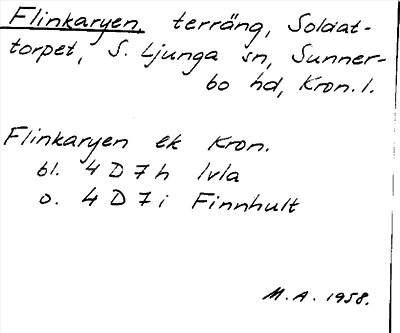 Flinkaryen, terräng, Soldat-
torpet, S. Ljunga sn, Sunner-
bo hd, Kron. l.
Flinkaryen ek Kron.
bl. 4 D 7 h Ivla
o. 4 D 7 i Finnhult
M. A. 1958.